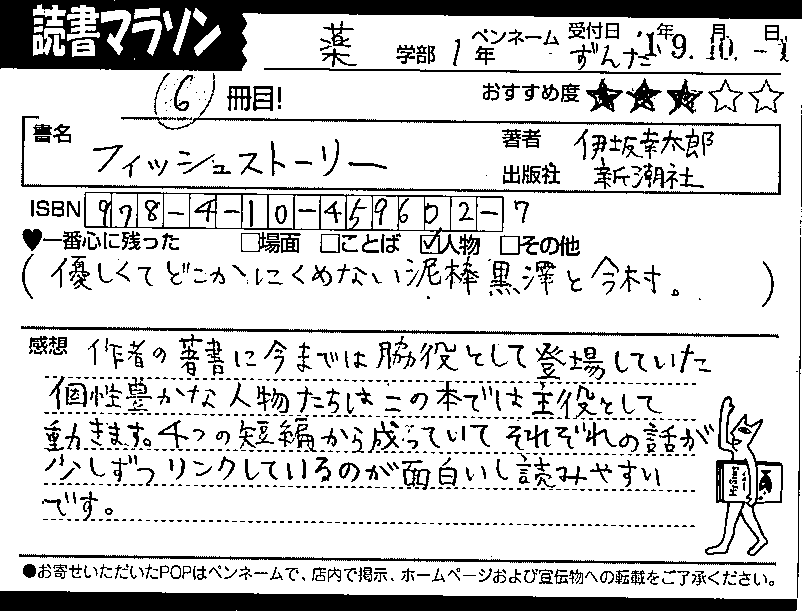 読書マラソン
薬 学部 1 年 ペンネーム ずんだ 受付日 '19年 9月 10日
6 冊目! おすすめ度 ★★★☆☆
書名 フィッシュストーリー
著者 伊坂幸太郎
出版社 新潮社
ISBN 978-4-10-459602-7
♥一番心に残った □場面 □ことば ☑人物 □その他
(優しくてどこかにくめない泥棒黒澤と今村。)
感想 作者の著書に今までは脇役として登場していた
個性豊かな人物たちはこの本では主役として
動きます。4つの短編から成っていてそれぞれの話が
少しずつリンクしているのが面白いし読みやすい
です。
●お寄せいただいたPOPはペンネームで、店内で掲示、ホームページおよび宣伝物への転載をご了承ください。